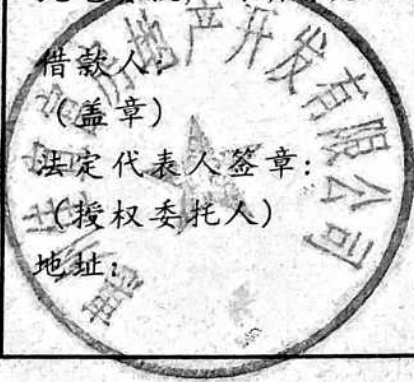 借款人:
(盖章)
法定代表人签章:
(授权委托人)
地址:
房地产开发有限公司